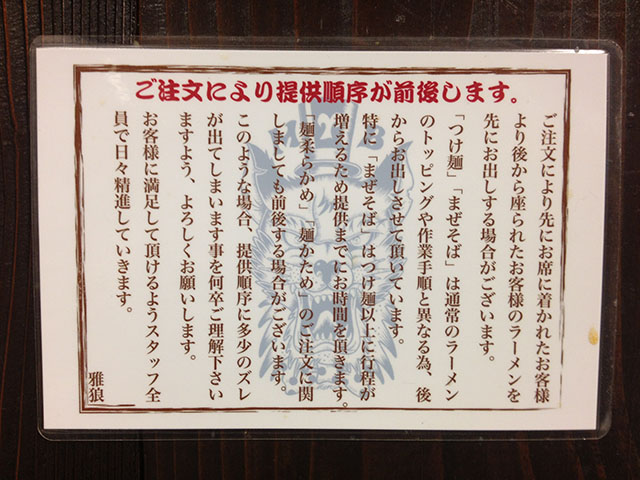 ご注文により提供順序が前後します。
ご注文により先にお席に着かれたお客様
より後から座られたお客様のラーメンを
先にお出しする場合がございます。
「つけ麺」「まぜそば」は通常のラーメン
のトッピングや作業手順と異なる為、後
からお出しさせて頂いています。
特に「まぜそば」はつけ麺以上に行程が
増えるため提供までにお時間を頂きます。
「麺柔らかめ」「麺かため」のご注文に関
しましても前後する場合がございます。
このような場合、提供順序に多少のズレ
が出てしまいます事を何卒ご理解下さい
ますよう、よろしくお願いします。
お客様に満足して頂けるようスタッフ全
員で日々精進していきます。
雅狼